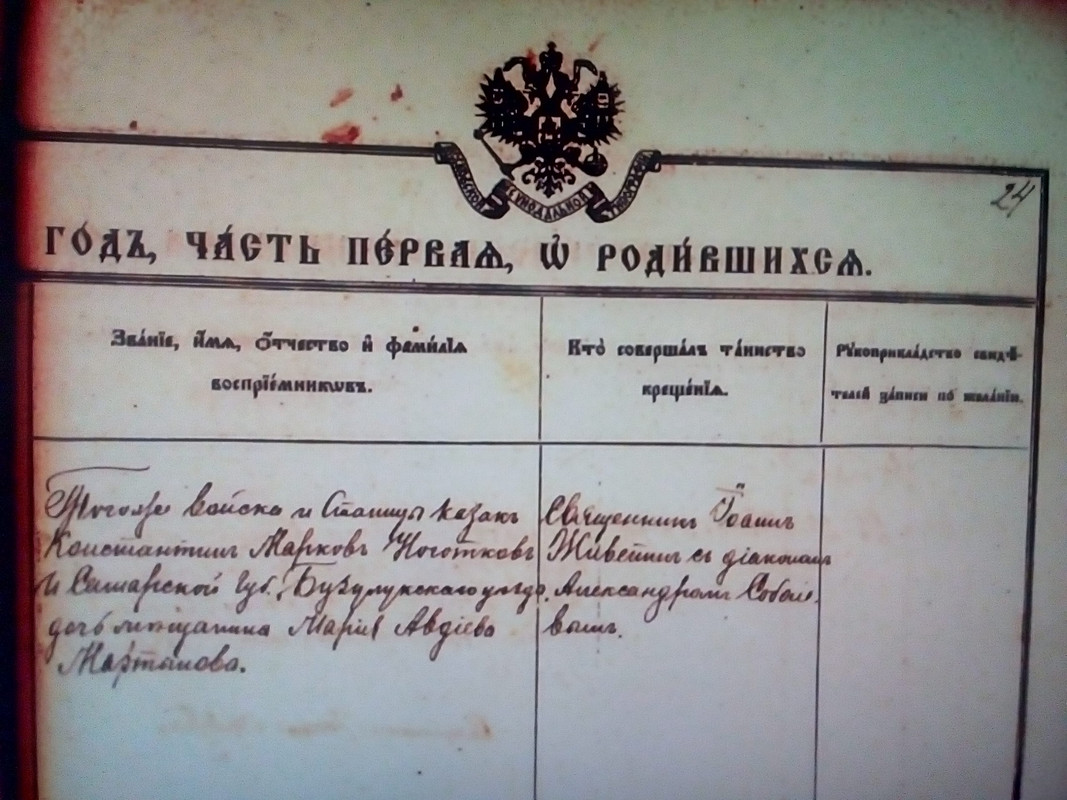 МОСКОВСКОЙ СѴНОДАЛЬНОЙ ТИПОГРАФІИ
24
ГО́ДЪ, ЧА́СТЬ ПЕ́РВАѦ, Ѽ РОДИ́ВШИХСѦ.
Зва́нїе, и҆́мѧ, ѻ҆́тчество и҆ фами́лїѧ
воспрїе́мникѡвъ.
Кто̀ соверша́лъ та́инство
креще́нїѧ.
Рꙋкоприкла́дство свидѣ́-
телей за́писи по жела́нїю.
Тогоже войска и Станицы казакъ
Константинъ Марковъ Ноготковъ
и Самарской Губ. Бузулукскаго уезда,
дочь мещанина Марія Авдіева
Мартанова.
Священникъ Іоаннъ
Живетинъ съ діакономъ
Александромъ Соболе-
вымъ.